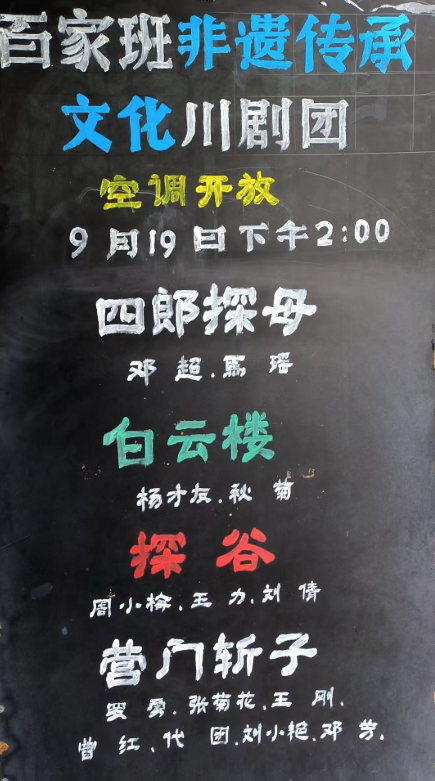 百家班非遗传承
文化川剧团
空调开放
9月19日下午2:00
四郎探母
邓超.馬瑶
白云楼
杨才友.秋菊
探谷
周小梅.王力.刘倩
营门斩子
罗勇.张菊花.王刚.
曾红.代团.刘小艳.邓芳.